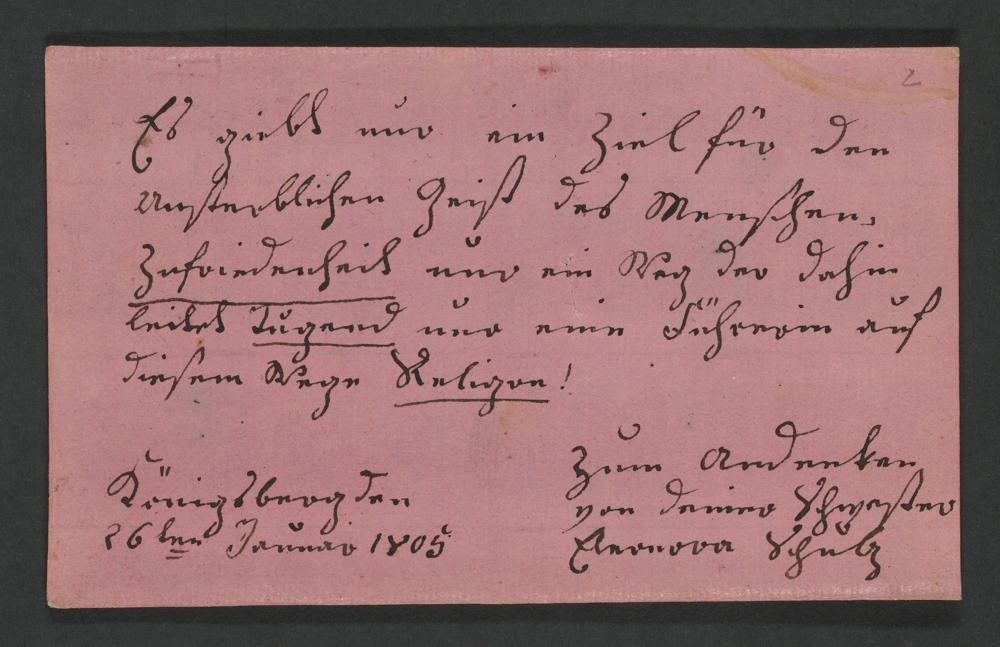 2
Es giebt nur ein Ziel für den
Unsterblichen Geist des Menschen,
Zufriedenheit nur ein Weg der dahin
leitet Tugend nur eine Führerin auf
diesem Wege Religion!
Königsberg den
26ten Januar 1805
Zum Andenken
von deiner Schwester
Eleonora Schulz